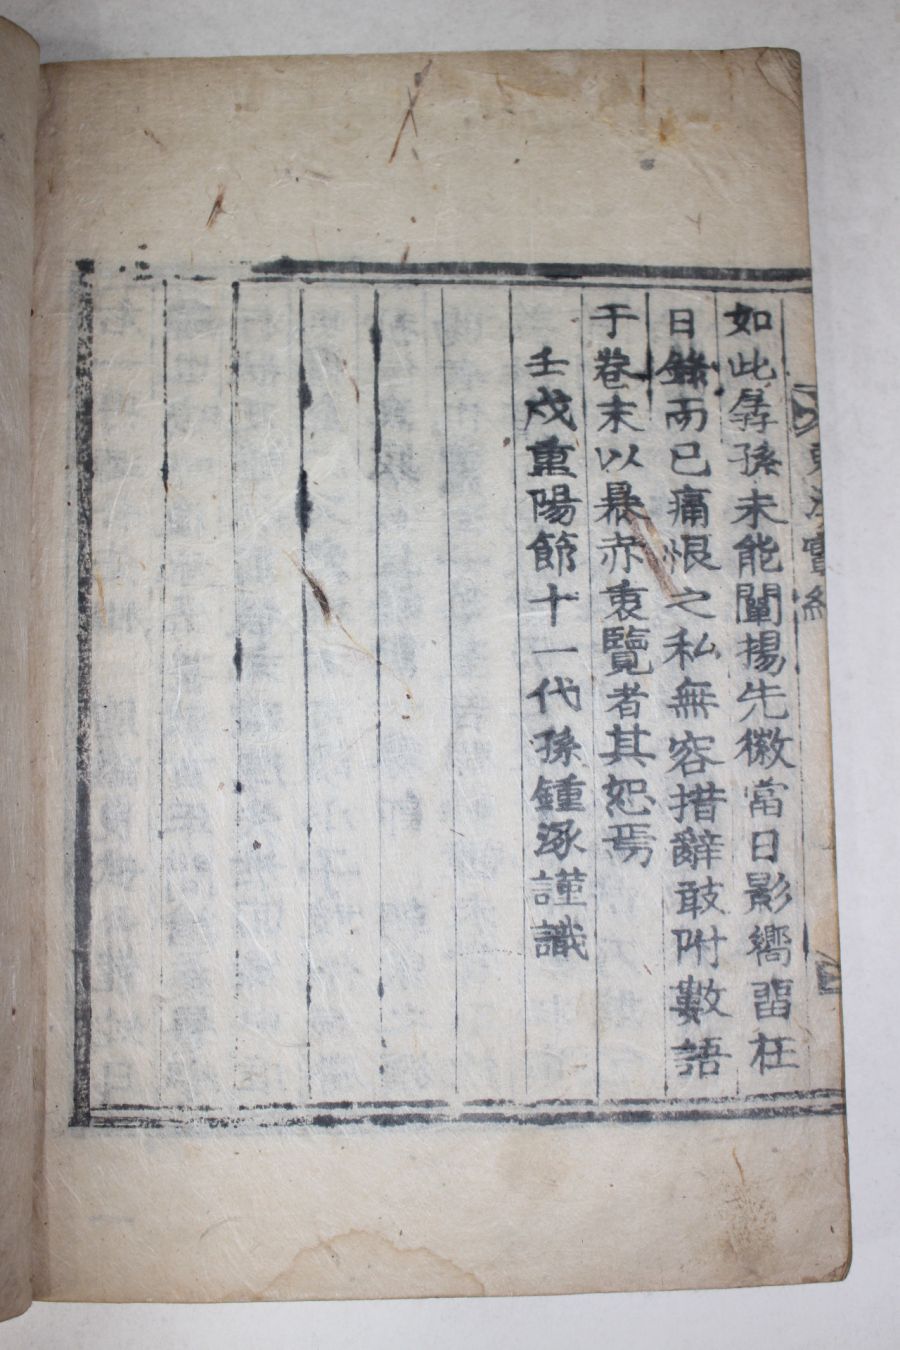 如此孱孫未能闡揚先徽當日影嚮畱在
日錄而已痛恨之私無容措辭敢附數語
于卷末以暴赤衷覽者其恕焉
壬戌重陽節十一代孫鍾涿謹識